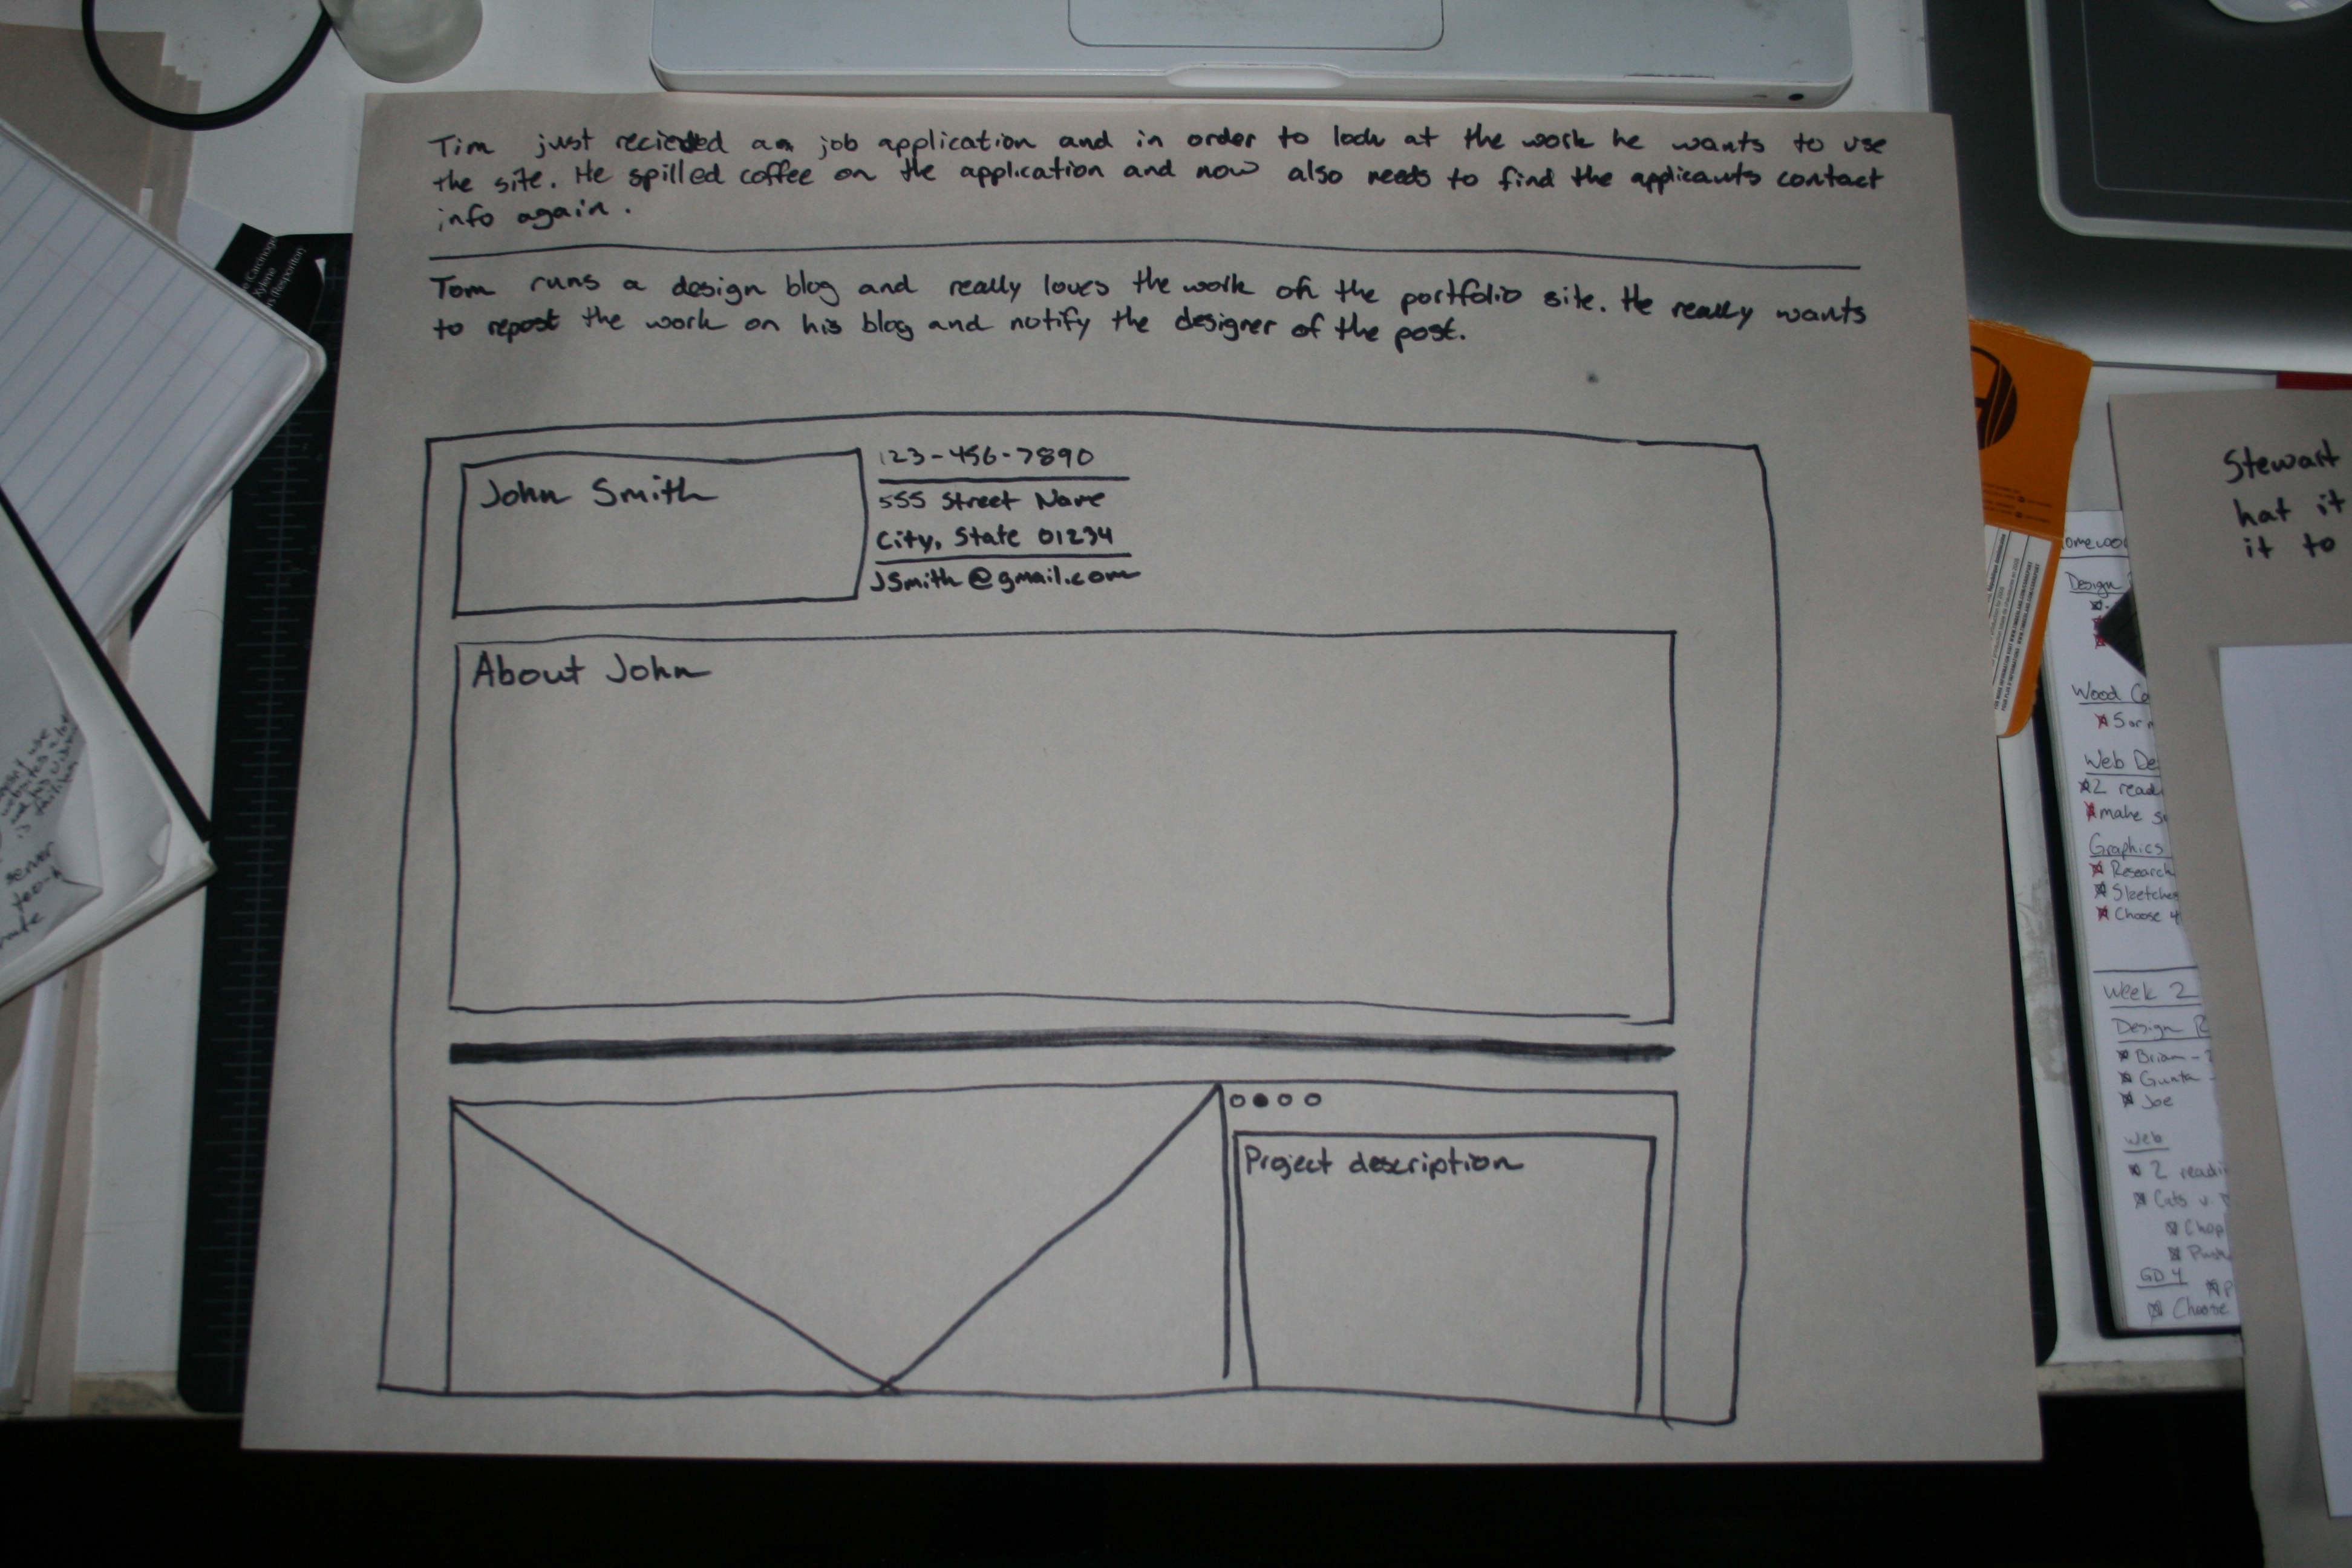 Tim just recieded an job application and in order to look at the work he wants to use
the site. He spilled coffee on the application and now also needs to find the applicants contact
info again.
Tom runs a design blog and really loves the work on the portfolio site. He really wants
to repost the work on his blog and notify the designer of the post.
John Smith
123-456-7890
555 Street Name
City, State 01234
JSmith@gmail.com
About John
Project description
Stewart
hat it
it to
Design
Wood Co
5 or
Web De
2 readi
make s
Graphics
Research
Sketches
Choose 4
Week 2
Design R
Brian -
Joe
Web
2 readi
Cats v.
Chop
Push
GD 4
Choose
server
is failing